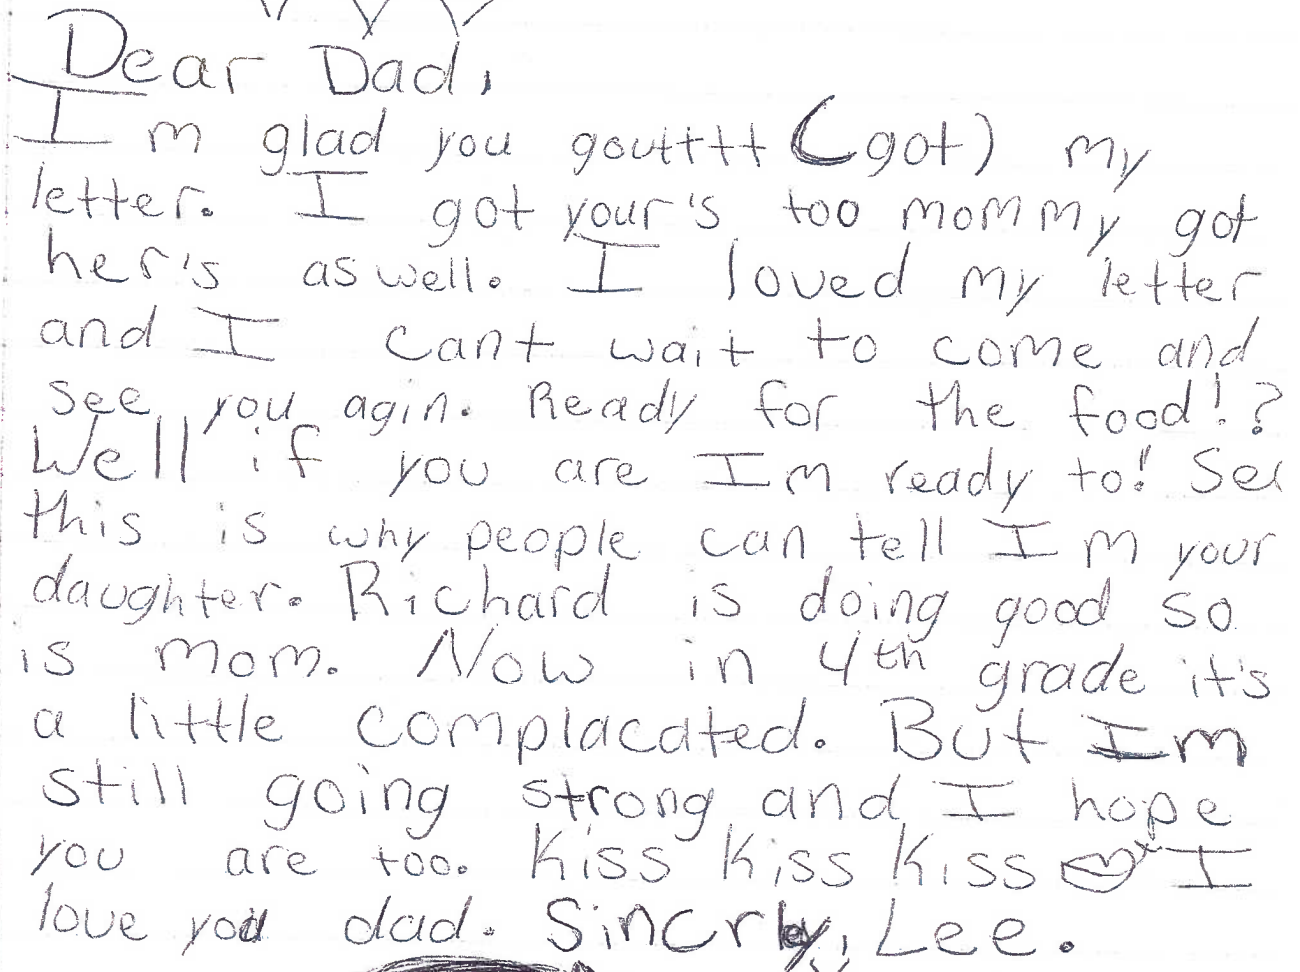 Dear Dad,
Im glad you gouttttt (got) my
letter. I got your's too mommy got
her's as well. I loved my letter
and I cant wait to come and
see you agin. Ready for the food!?
Well if you are Im ready to! See
this is why people can tell Im your
daughter. Richard is doing good so
is mom. Now in 4th grade it's
a little complacated. But Im
still going strong and I hope
you are too. Kiss Kiss Kiss I
love you dad. Sincrly, Lee.